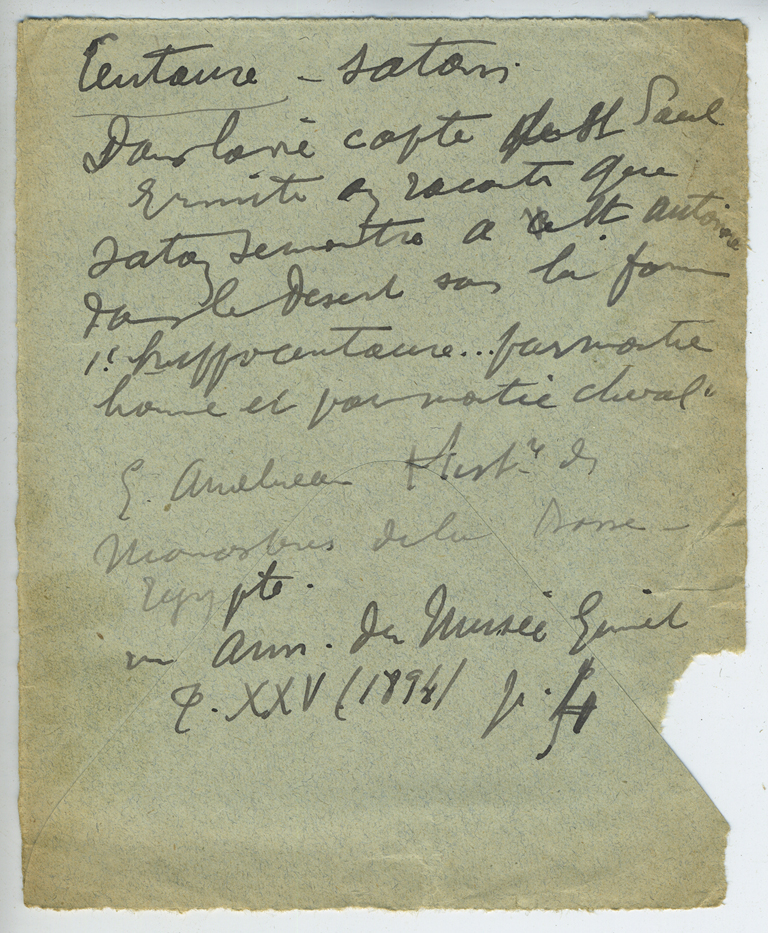 Centaure - Satan.
Dans la vie copte de St Paul
Ermite on raconte que
Satan se montre a St Antoine
dans le desert sous la forme
hippocentaure... par moitié
homme et par moitié cheval"
E. Amelineau Hist.re des
Monastères de la Basse-
Egypte.
in Ann. du Musée Guimet
t. XXV (1894) p. 4